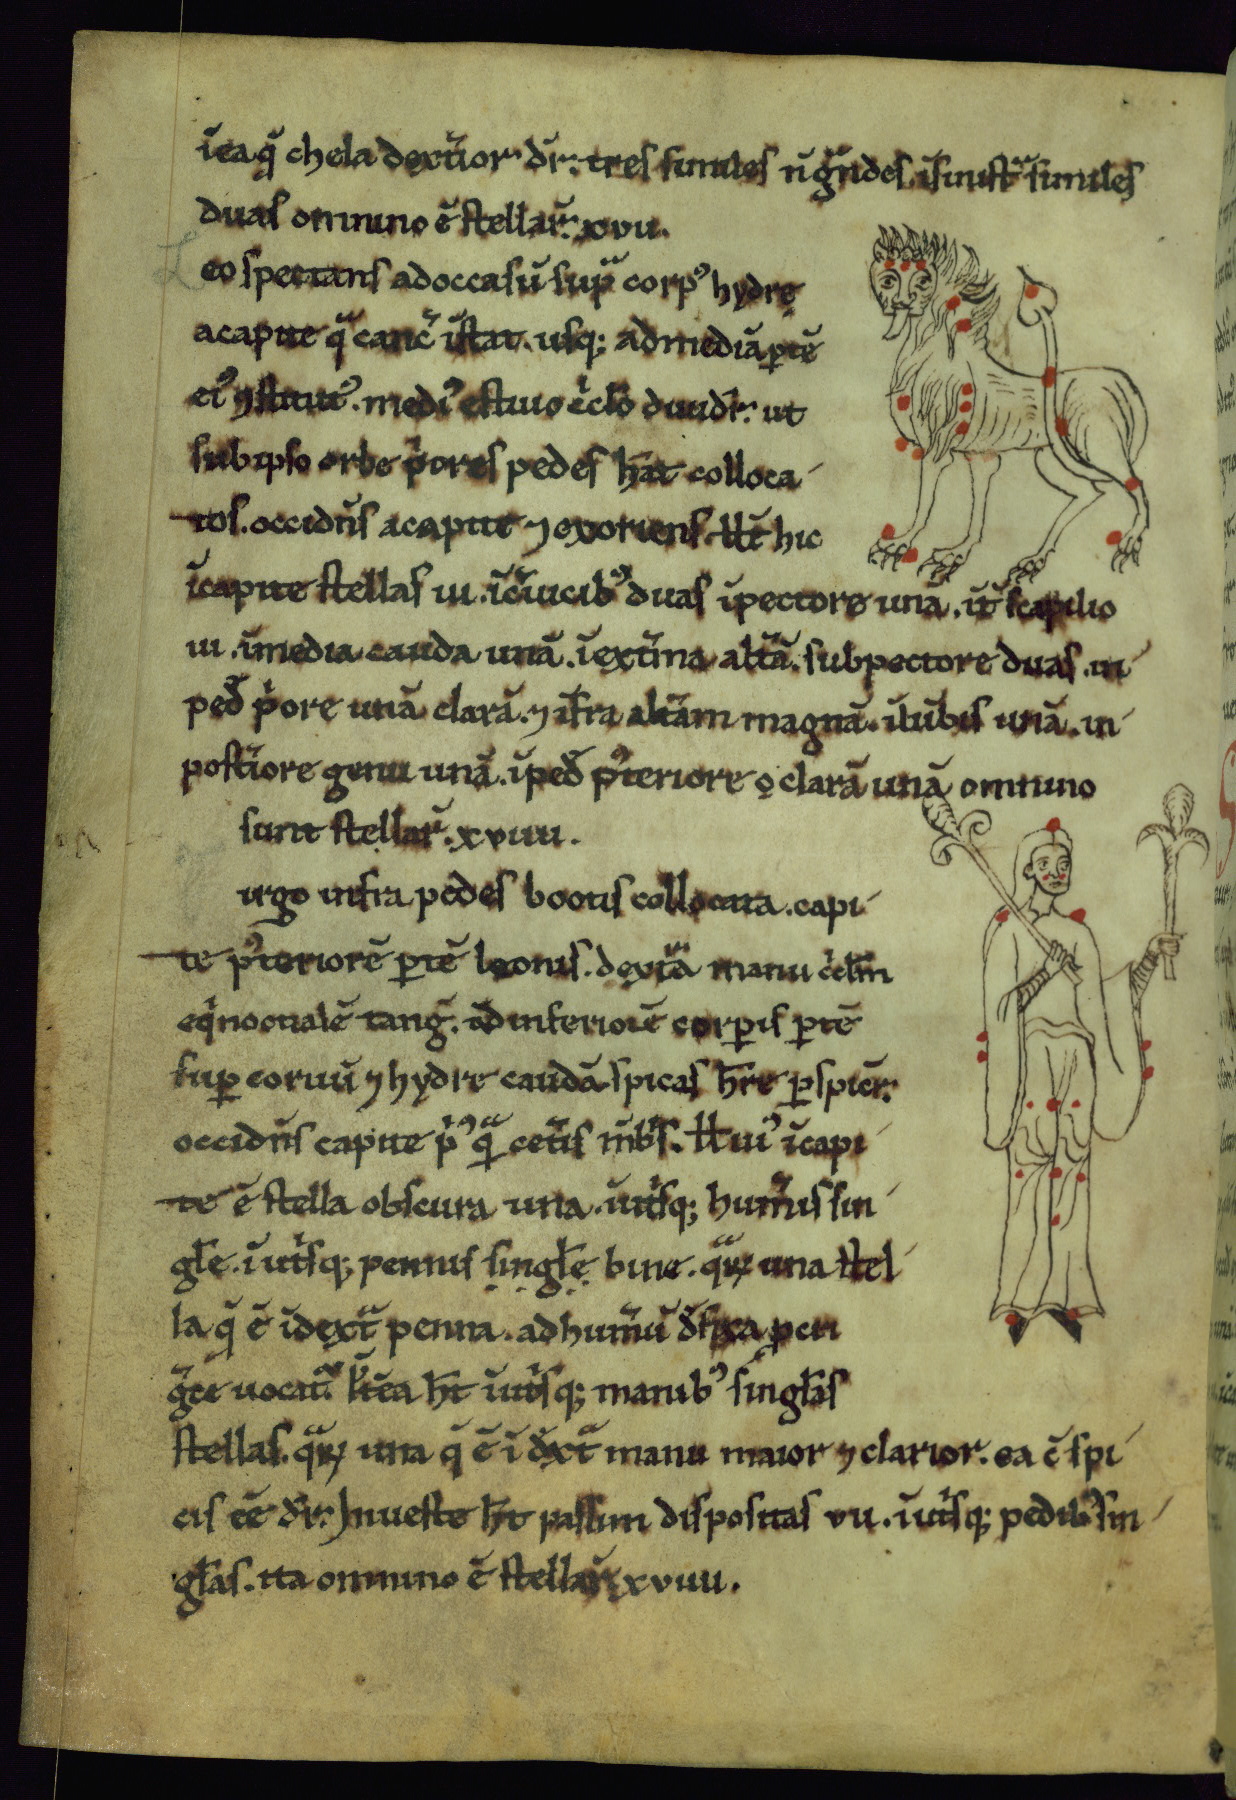 īea q̄ chela dext̄ior dr̄: tres similes n̄ gͣndes. īsinistͣ similes
duas omnino ē stellaꝝ. xvii.
Leo spectans adoccasū supͣ corpꝰ hydrę
acapite q̄ canc̄ īstat. usq; admediā ꝑtē
eiꝰ ⁊stituitꝰ. mediꝰ estiuo c̄clo diuidr̄: ut
sub ipso orbe p̄ores pedes h̄at colloca
tos. occidn̄s acapite ⁊ exoriens. ħt hic
īcapite stellas iii. īc̄uicibꝰ duas īpectore unā. īt̄ scapilio
iii. īmedia cauda unā. īext̄ma alt̄ā. sub pectore duas. in
ped̄ p̄ore unā clarā. ⁊ ifr̄a alt̄am magnā. ilūbis unā. in
post̄iore genu unā. īped̄ pꝰteriore q̨ clarā unā omnino
sunt stellaꝝ. xviiii.
irgo infra pedes bootis collocata. capi
te pꝰteriorē ꝑtē leonis. dext̄ͣ manu c̄clm̄
eq̄noctialē tang̃. ad inferiorē corꝑis ꝑtē
suꝑ coruū ⁊ hydre caudā spicas h̄re ꝑspicr̄:
occidn̄s capite p̄ꝰ qͣ̄ cet̄is m̄bris. ħt uiꝰ īcapi
te ē stella obscura una. īut̄sq; hum̄is sin
gl̄e. īut̄sq; pennis singl̄e bine. qͣꝝ una stel
la q̄ ē īdextͣ penna. ad hum̄ū d̄fixa ꝑtri
g̃ēe uocat̄. p̄t̄ea ħt īut̄sq; manibꝰ singl̄as
stellas. qͣꝝ una q̄ ē ī dextͣ manu maior ⁊ clarior. ea ē spi
cis cē dr̄: Inueste ħt passim dispositas vii. īut̄sq; pedibꝰ sin
gl̄as. ita omnino ē stellaꝝ xviiii.